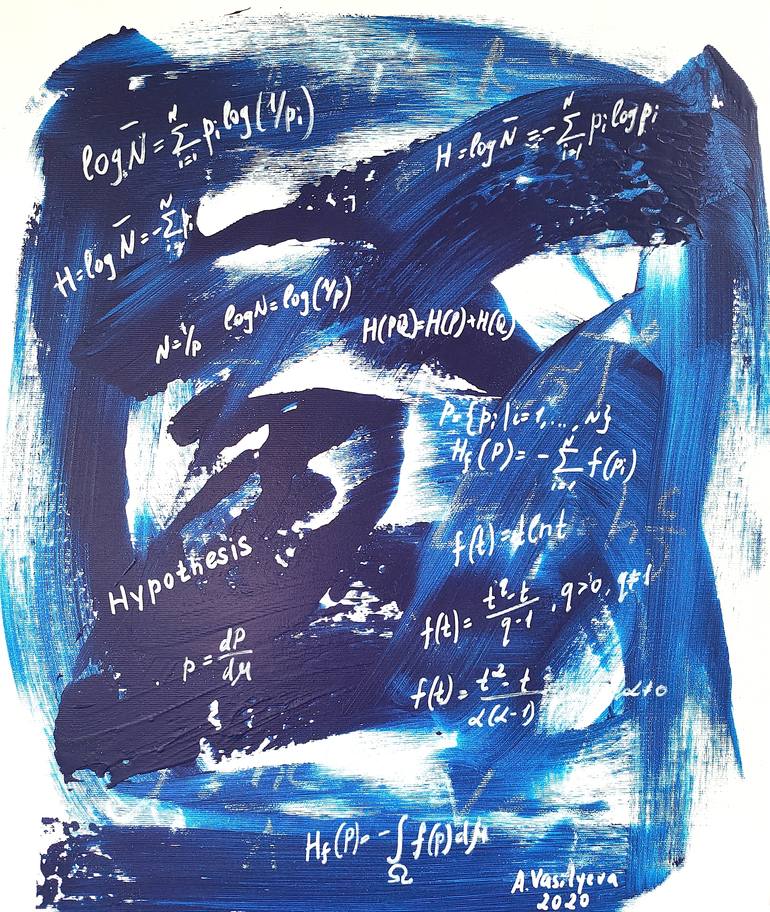 log N̄ = Σ_{i=1}^{N} p_i log(1/p_i)
H = log N̄ = -Σ_{i=1}^{N} p_i log p_i
H = log N̄ = -Σ_{i=1}^{N} p_i
N = 1/p
log N = log(1/p)
H(PQ) = H(P) + H(Q)
P = {p_i | i = 1, ..., N}
H_f(P) = -Σ_{i=1}^{N} f(p_i)
Hypothesis
f(t) = t ln t
f(t) = (t^q - t)/(q - 1), q > 0, q ≠ 1
p = dP/dμ
f(t) = (t^α - t)/(α(α - 1)) α ≠ 0
H_f(P) = -∫_Ω f(p) dμ
A. Vasilyeva
2020